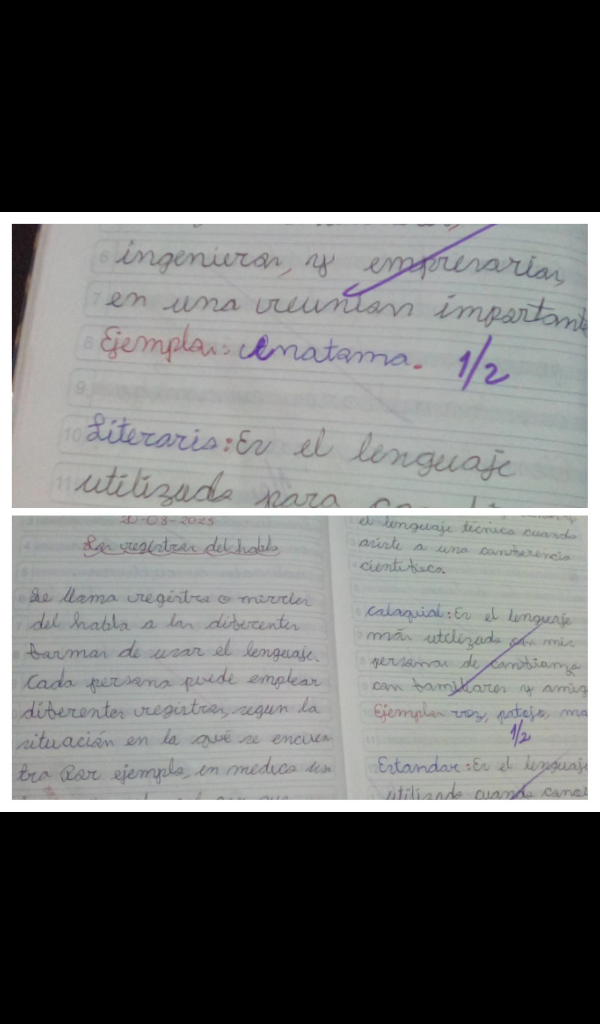 ingenieros, y empresarios,
en una reunión important
Ejemplos: Anatoma. 1/2
Literario: Es el lenguaje
utilizado para
20-08-2025
Los registros del habla
Se llama registro o
del habla a las diferentes
formas de usar el lenguaje.
Cada persona puede emplear
diferentes registros, segun la
situación en la qué se encuen
tra Por ejemplo, un medico us
el lenguaje técnico cuando
asiste a una conferencia
científico.
Coloquial: Es el lenguaje
más utilizado con mis
personas de confianza
con familiares y amig
Ejemplo: voz, ma
1/2
Estandar: Es el lenguaje
utilizado cuando